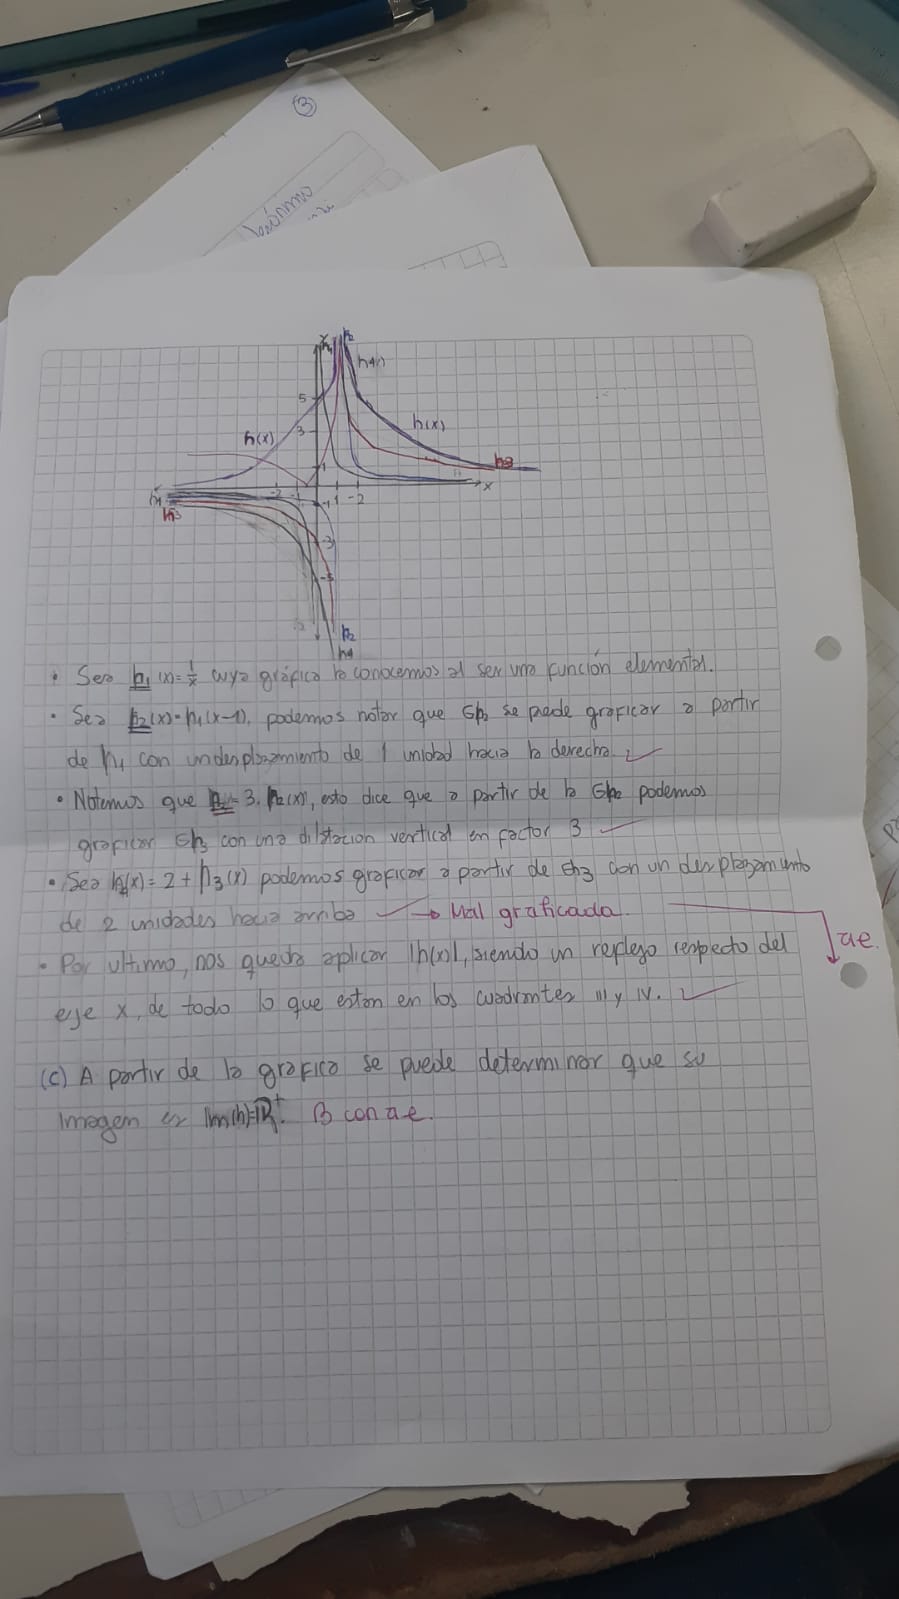 3
Y
h1
h2
h4
5
h(x)
h(x)
3
1
h3
x
-2
-1
1
-2
h1
h3
-1
-3
-5
h2
h4
• Sea h1(x)=1/x cuya gráfica la conocemos al ser una función elemental.
• Sea h2(x)=h1(x-1), podemos notar que Gh2 se puede graficar a partir
de h1 con un desplazamiento de 1 unidad hacia la derecha. ✓
• Notemos que h3=3.h2(x), esto dice que a partir de la Gh2 podemos
graficar Gh3 con una dilatacion vertical en factor 3 ✓
• Sea h4(x)=2+h3(x) podemos graficar a partir de Gh3 con un desplazamiento
de 2 unidades hacia arriba ✓ → Mal graficada.
ae.
• Por ultimo, nos queda aplicar |h(x)|, siendo un reflejo respecto del
eje x, de todo lo que estan en los cuadrantes III y IV. ✓
(c) A partir de la grafica se puede determinar que su
imagen es Im(h)=R⁺. B con ae.